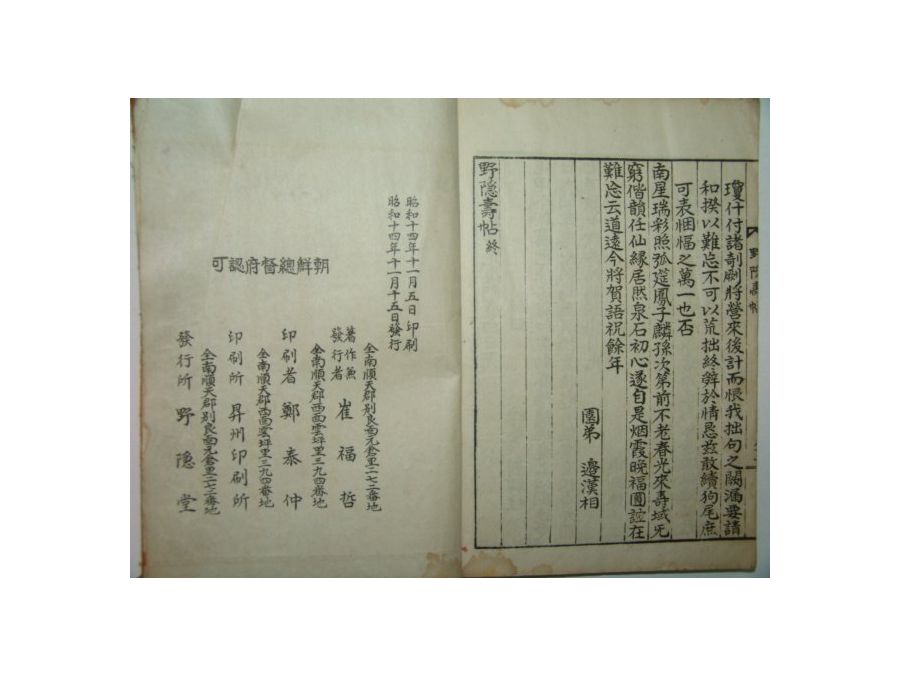 瓊什付諸剞劂將營來後計而恨我拙句之闕漏要請
和揆以難忘不可以荒拙終辭於情忌玆敢續狗尾庶
可表悃愊之萬一也否
南星瑞彩照弧筵鳳子麟孫次第前不老春光來壽域旡
窮偕韻任仙緣居然泉石初心遂自是烟霞晚福圓誼在
難忘云道遠今將賀語祝餘年
園弟 邊漢相
野隱壽帖 終
野隱壽帖
昭和十四年十一月五日印刷
昭和十四年十一月十五日發行
朝鮮總督府認可
全南順天郡別良面元倉里二七二番地
著作兼發行者 崔福哲
全南順天郡西面雲坪里三九四番地
印刷者 鄭泰仲
全南順天郡西面雲坪里三九四番地
印刷所 昇州印刷所
全南順天郡別良面元倉里二七二番地
發行所 野隱堂